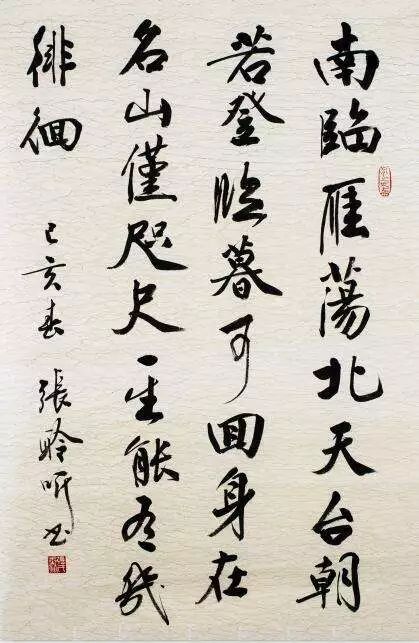 南臨雁蕩北天台朝
若登臨暮可回身在
名山僅咫尺一生能有幾
徘徊
己亥春 張